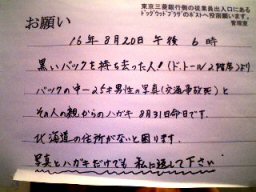 お願い
東京三菱銀行側の従業員出入口にある
ドッグウッドプラザのポストへ投函願います。
管理室
16年8月20日午後6時
黒いバックを持ち去った人!(ドトール2階席)より
バックの中ー25才男性の写真(交通事故死)と
その人の親からのハガキ 8月31日命日です。
北海道の住所がないと困ります。
写真とハガキだけでも 私に返して下さい